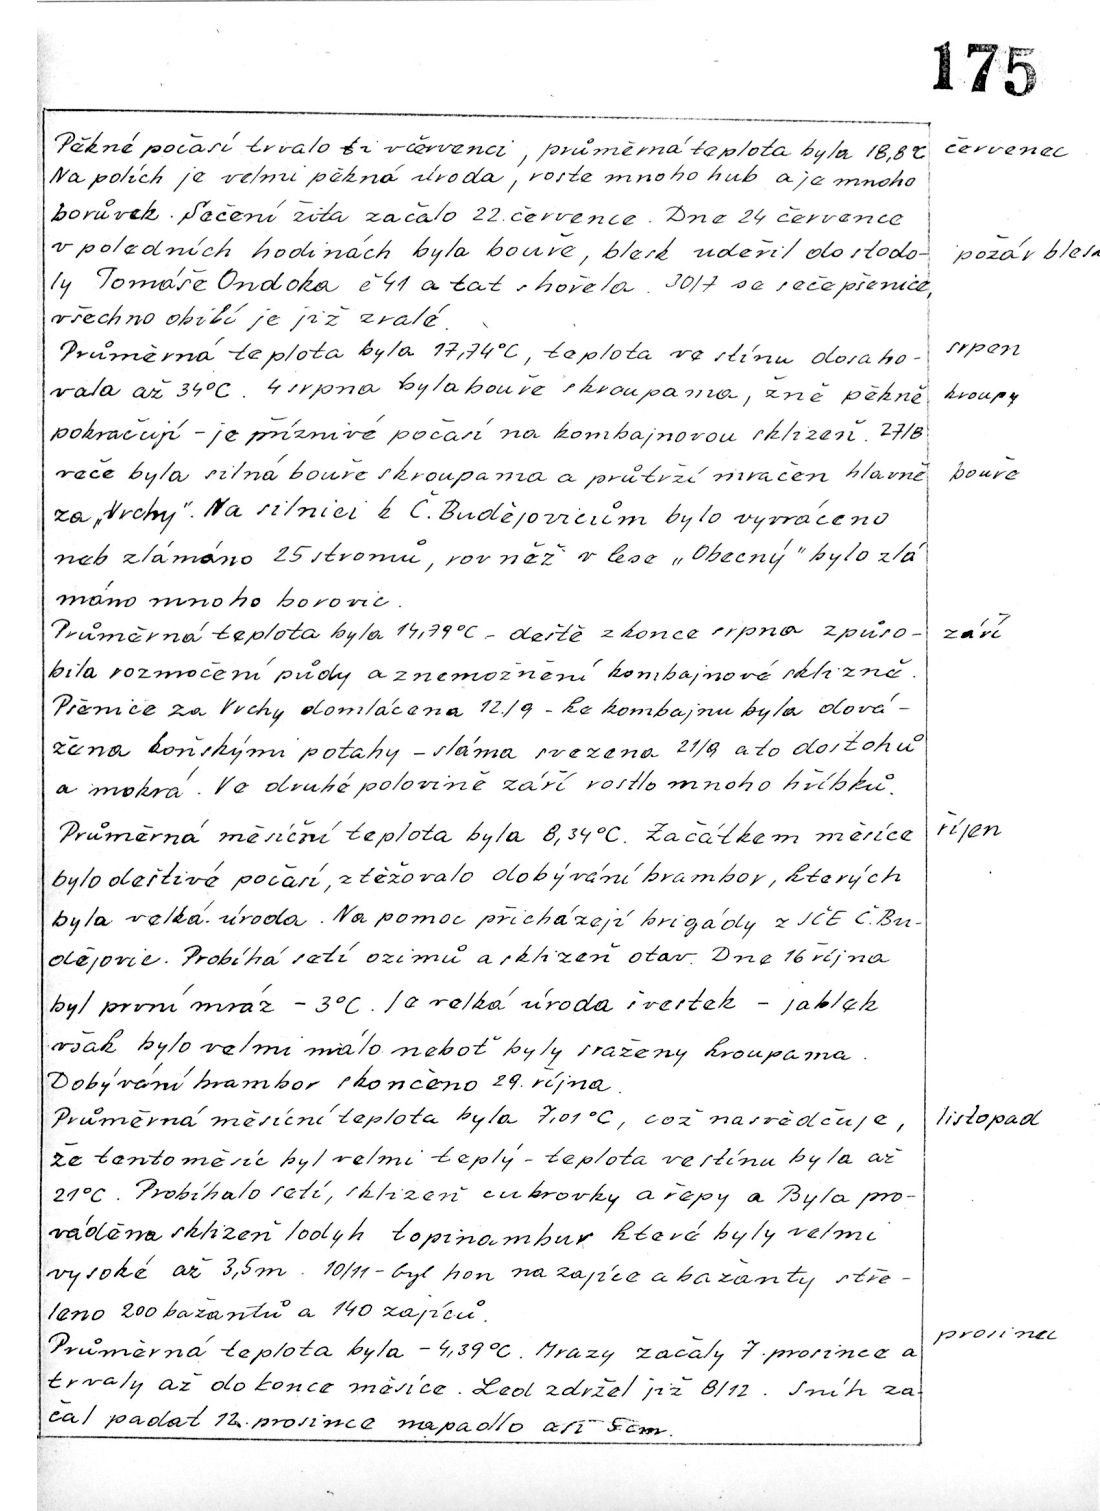 175
Pěkné počasí trvalo i v červenci, průměrná teplota byla 18,8°C červenec
Na polích je velmi pěkná úroda, roste mnoho hub a je mnoho
borůvek. Sečení žita začalo 22. července. Dne 24 července
v poledních hodinách byla bouře, blesk udeřil do stodo- požár blesk
ly Tomáše Ondoka č 41 a tat shořela. 30/7 se seče pšenice,
všechno obilí je již zralé.
Průměrná teplota byla 17,74°C, teplota ve stínu dosaho- srpen
vala až 34°C. 4 srpna byla bouře s kroupama, žně pěkně kroupy
pokračují - je příznivé počasí na kombajnovou sklizeň. 27/8
večer byla silná bouře s kroupama a průtrží mračen hlavně bouře
za „Vrchy". Na silnici k Č. Budějovicům bylo vyvráceno
neb zlámáno 25 stromů, rovněž v lese „Obecný" bylo zlá
máno mnoho borovic.
Průměrná teplota byla 14,79°C - deště z konce srpna způso- září
bila rozmočení půdy a znemožnění kombajnové sklizně.
Pšenice za Vrchy domlácena 12./9 - ke kombajnu byla dová-
žena koňskými potahy - sláma svezena 21/9 a to do stohů
a mokrá. Ve druhé polovině září rostlo mnoho hříbků.
Průměrná měsíční teplota byla 8,34°C. Začátkem měsíce říjen
bylo deštivé počasí, ztěžovalo dobývání brambor, kterých
byla velká úroda. Na pomoc přicházejí brigády z SČE Č. Bu-
dějovic. Probíhá setí ozimů a sklizeň otav. Dne 16 října
byl první mráz - 3°C. Je velká úroda švestek - jablek
však bylo velmi málo neboť byly sraženy kroupama.
Dobývání brambor skončeno 29. října.
Průměrná měsíční teplota byla 7,01°C, což nasvědčuje, listopad
že tento měsíc byl velmi teplý - teplota ve stínu byla až
21°C. Probíhalo setí, sklizeň cukrovky a řepy a Byla pro-
váděna sklizeň lodyh topinambur které byly velmi
vysoké až 3,5m. 10/11 - byl hon na zajíce a bažanty stře-
leno 200 bažantů a 140 zajíců.
Průměrná teplota byla - 4,39°C. Mrazy začaly 7. prosince a prosinec
trvaly až do konce měsíce. Led zdržel již 8/12. Sníh za-
čal padat 12. prosince napadlo asi 5cm.